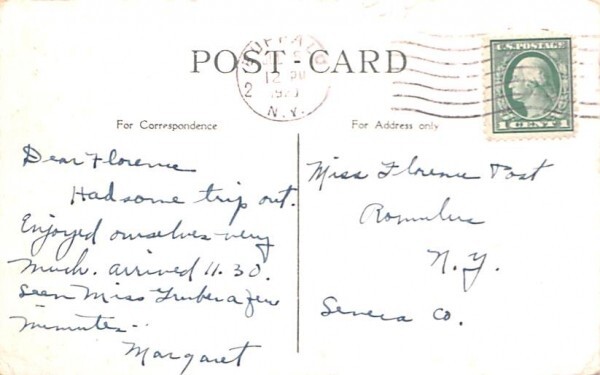 POST-CARD
BUFFALO
12 PM
2
N.Y.
U.S. POSTAGE
1 CENT 1
For Correspondence
Dear Florence
Had some trip out.
Enjoyed ourselves very
much. arrived 11.30.
seen Miss Gruber a few
minutes..
Margaret
For Address only
Miss Florence Post
Romulus
N.Y.
Seneca Co.